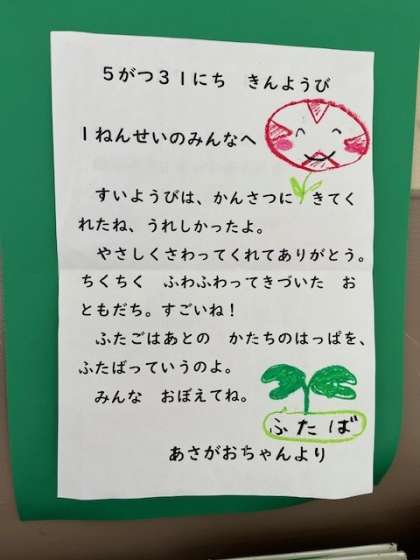 ５がつ３１にち　きんようび
１ねんせいのみんなへ
すいようびは、かんさつに　きてく
れたね、うれしかったよ。
やさしくさわってくれてありがとう。
ちくちく　ふわふわってきづいた　お
ともだち。すごいね！
ふたごはあとの　かたちのはっぱを、
ふたばっていうのよ。
みんな　おぼえてね。
ふたば
あさがおちゃんより